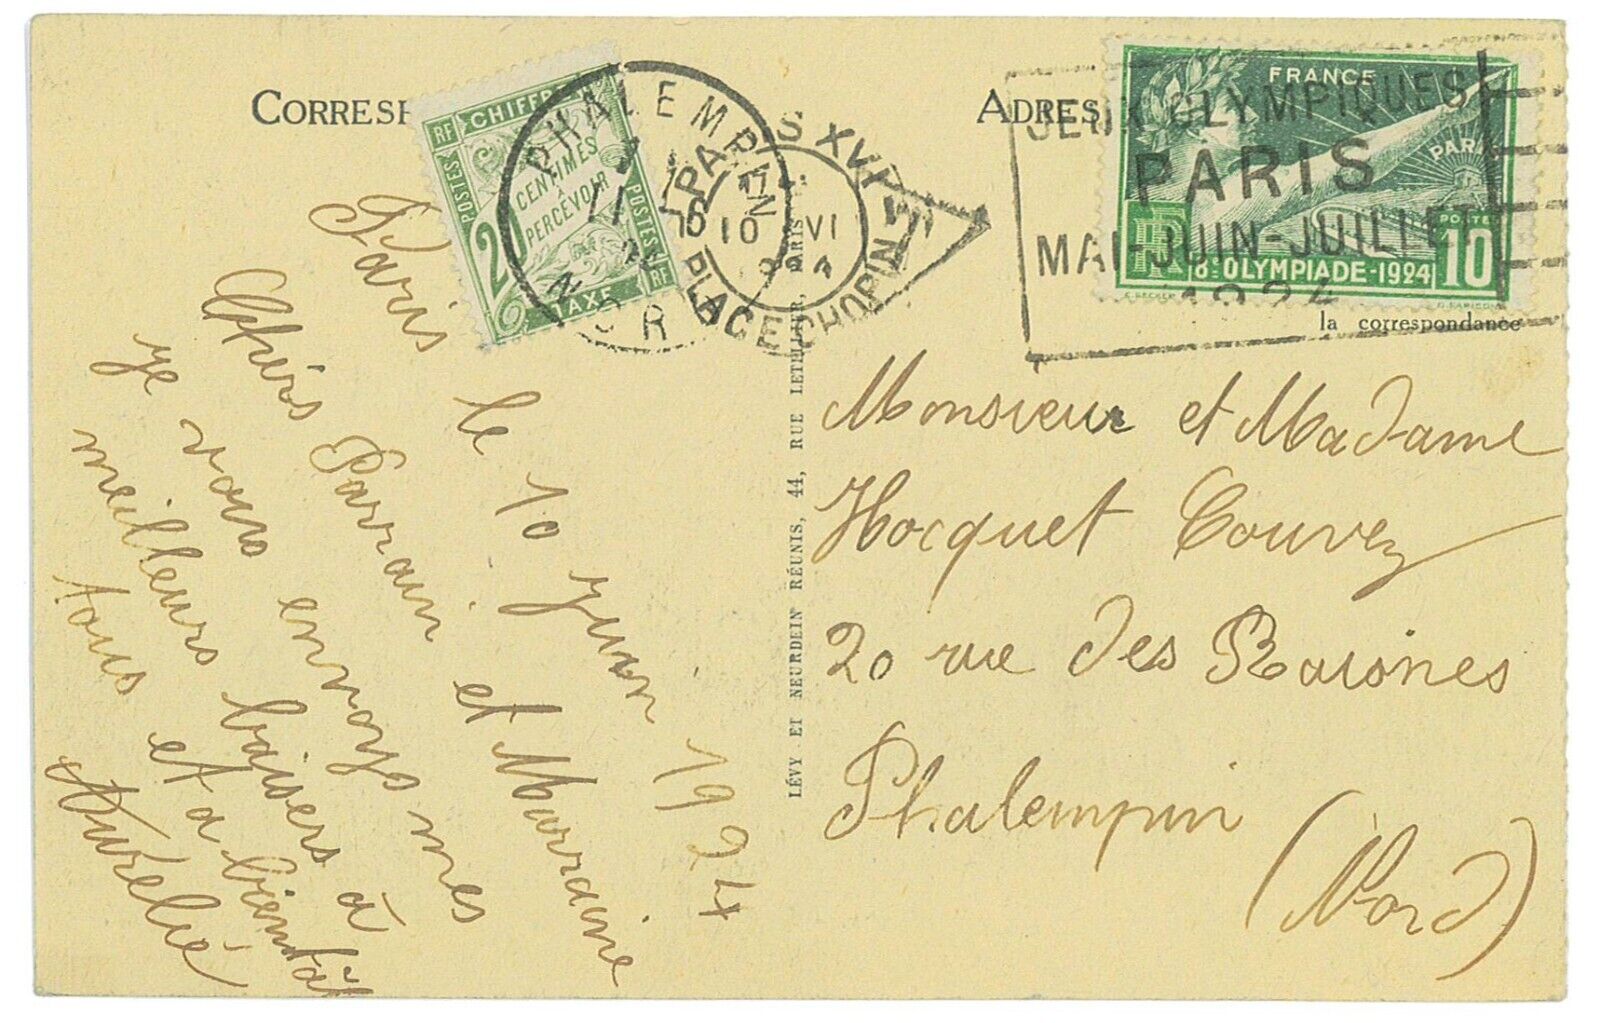 CORRESP
ADRES
la correspondance
RF CHIFFRE
POSTES
20 CENTIMES
À
PERCEVOIR
POSTES
TAXE
RF
PHALEMPIN
11
24
NOR
PARIS XVI
PLACE CHOPIN
17
10 VI
24
JEUX OLYMPIQUES
PARIS
MAI-JUIN-JUILLET
1924
FRANCE
PARIS
RF
POSTES
10
8e OLYMPIADE-1924
E. BECKER
G. DAUSSY
Paris le 10 juin 1924
Chers Parrain et Marraine
je vous envoys mes
meilleurs baisers à
tous et a bientôt
Aurélie
LÉVY ET NEURDEIN RÉUNIS, 44, RUE LETELLIER, PARIS
Monsieur et Madame
Hocquet Couvez
20 rue des Raisnes
Phalempin
(Nord)